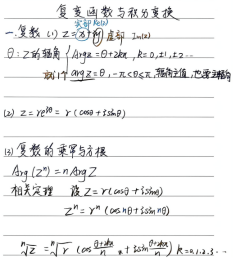 复变函数与积分变换
实部 Re(z)
一.复数 (1) z = x + iy 虚部 Im(z)
θ: z的辐角 { Arg z = θ + 2kπ, k = 0, ±1, ±2…
arg z = θ, -π<θ≤π, 辐角主值,
(2) z = re^{iθ} = r (cosθ + i sinθ)
(3) 复数的乘幂与方根
Arg (z^n) = n Arg z
相关定理 设 z = r (cosθ + i sinθ)
z^n = r^n (cos nθ + i sin nθ)
ⁿ√z = ⁿ√r (cos (θ+2kπ)/n + i sin (θ+2kπ)/n) k = 0,1,2,3…